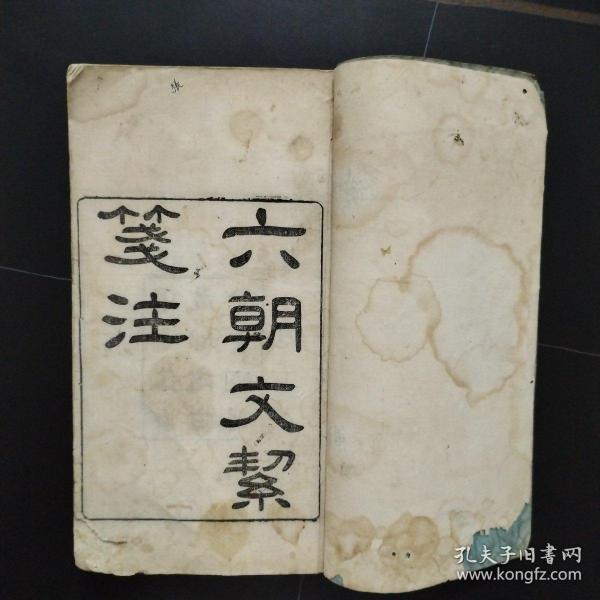 六朝文絜
箋注
孔夫子旧書网
www.kongfz.com